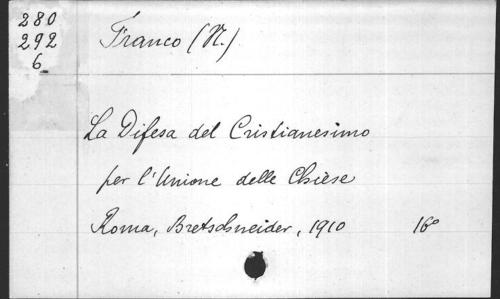 280
292
6
Franco (N.)
La Difesa del Cristianesimo
per l'Unione delle Chiese
Roma, Bretschneider, 1910 16º